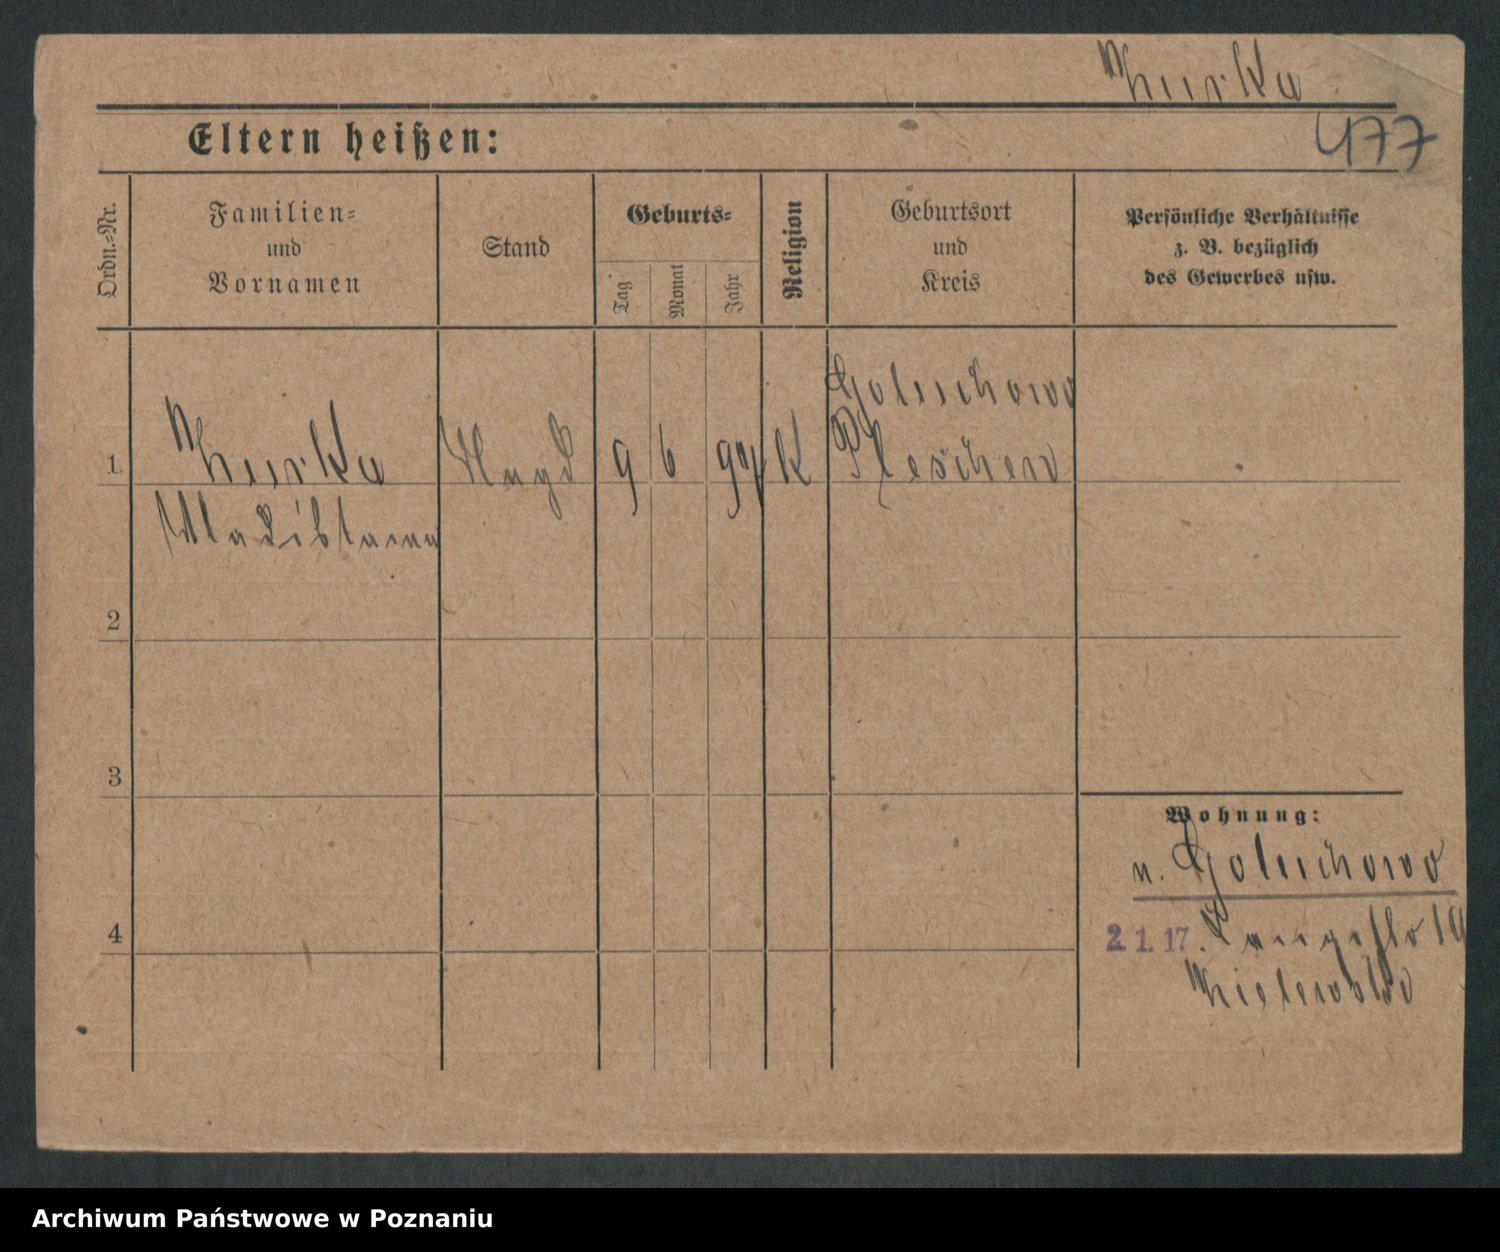 477
Eltern heißen:
Ordn.=Nr.
Familien=
und
Vornamen
Stand
Geburts=
Tag
Monat
Jahr
Religion
Geburtsort
und
Kreis
Persönliche Verhältnisse
z. B. bezüglich
des Gewerbes usw.
Goluchowo
1
Magd
9
6
97
K
Pleschen
Wladislawa
2
3
Wohnung:
n. Goluchowo
4
2. 1. 17.
19
Archiwum Państwowe w Poznaniu